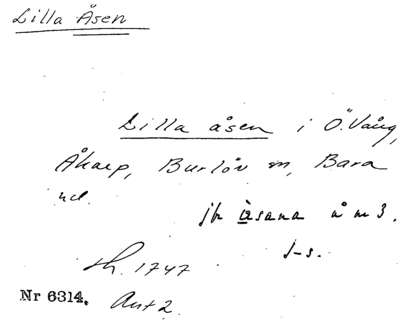 Lilla Åsen
Lilla åsen i Ö. Vång,
Åkarp, Burlöv sn, Bara
hd.
jfr åsana å m 3.
J-s.
Sk. 1747
Nr 6314. Akt 2.